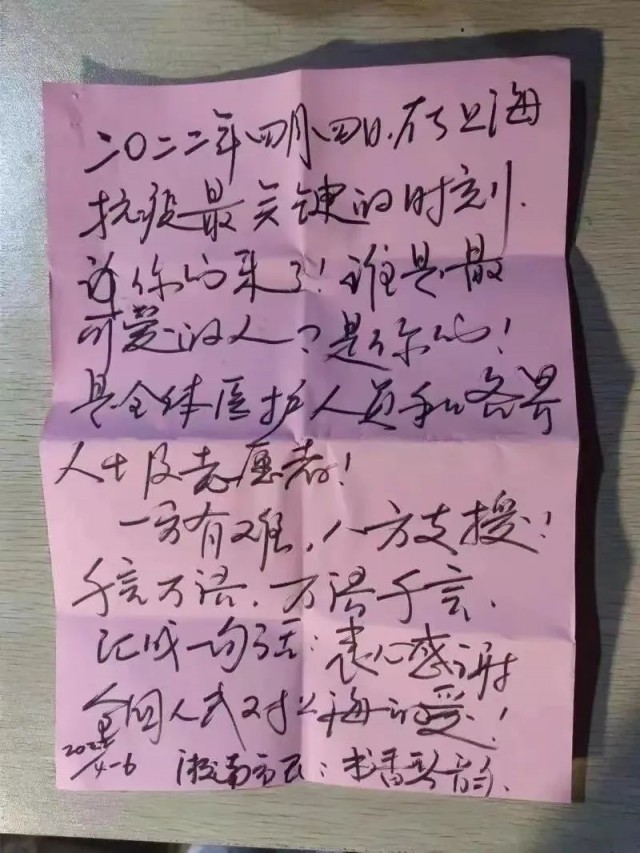 二〇二二年四月四日.在上海
抗疫最关键的时刻.
你们来了!谁是最
可爱的人?是你们!
是全体医护人员和各界
人士及志愿者!
一方有难,八方支援!
千言万语.万语千言.
汇成一句话:衷心感谢
全国人民对上海的爱!
2022
4-6
南市民:书香